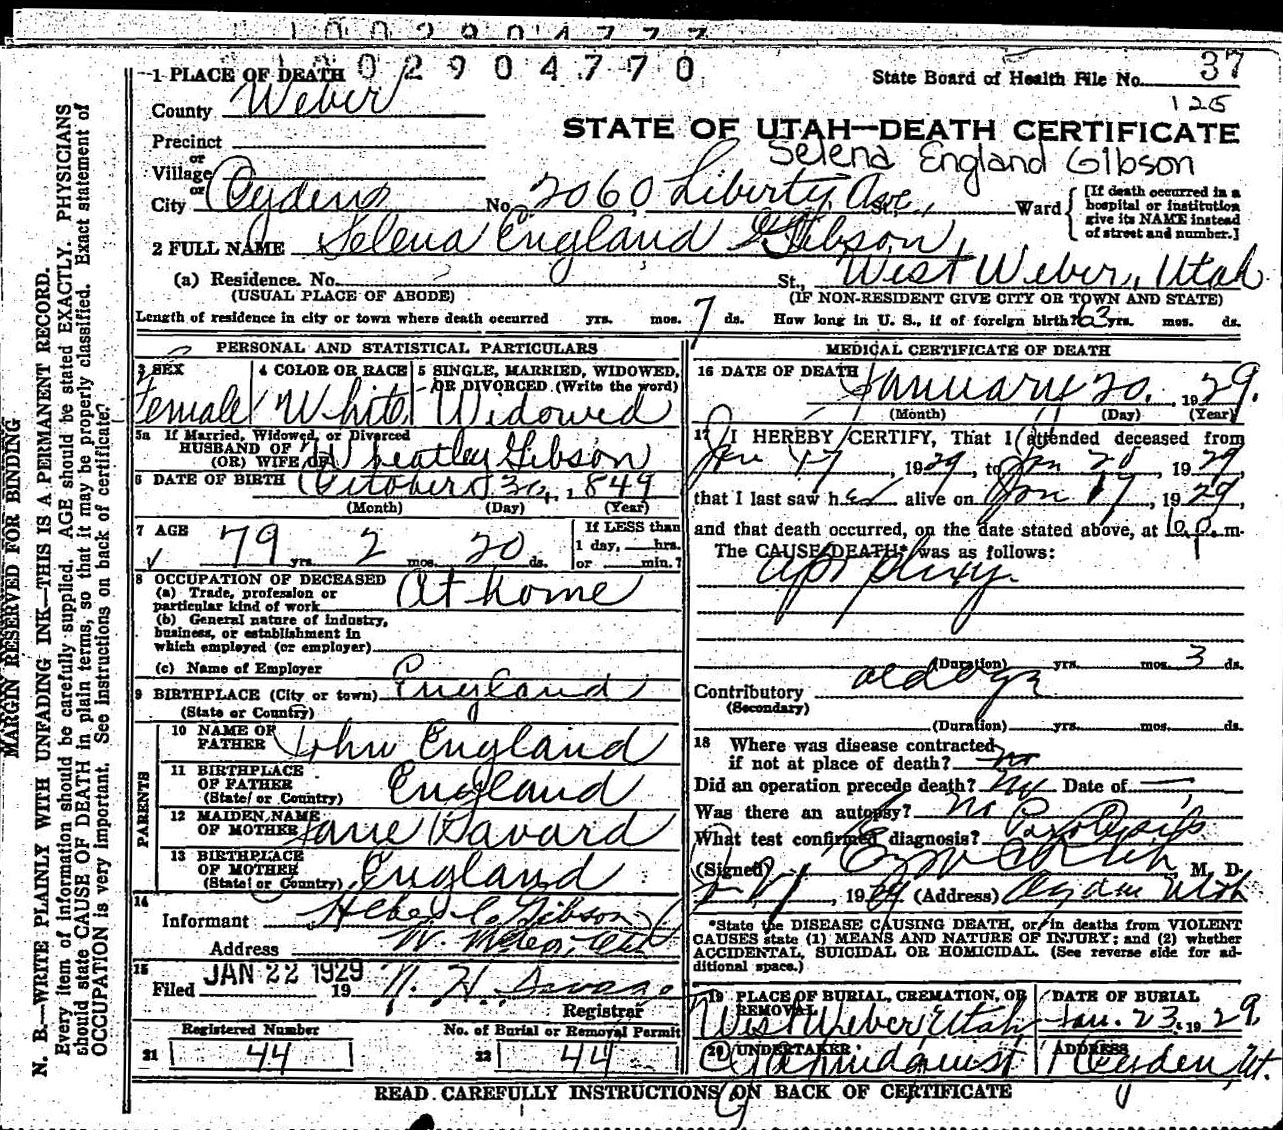 1002904770
State Board of Health File No. 37
125
1 PLACE OF DEATH
County Weber
STATE OF UTAH—DEATH CERTIFICATE
Selena England Gibson
Precinct
or
Village
or
City Ogden No. 2060 Liberty Ave. St., Ward
[If death occurred in a hospital or institution give its NAME instead of street and number.]
2 FULL NAME Selena England Gibson
(a) Residence. No. St., West Weber, Utah
(USUAL PLACE OF ABODE) (IF NON-RESIDENT GIVE CITY OR TOWN AND STATE)
Length of residence in city or town where death occurred yrs. mos. 7 ds. How long in U. S., if of foreign birth? 63 yrs. mos. ds.
PERSONAL AND STATISTICAL PARTICULARS
3 SEX
Female
4 COLOR OR RACE
White
5 SINGLE, MARRIED, WIDOWED,
OR DIVORCED (Write the word)
Widowed
5a If Married, Widowed, or Divorced
HUSBAND OF
(OR) WIFE OF Wheatley Gibson
6 DATE OF BIRTH October 30, 1849
(Month) (Day) (Year)
7 AGE
79 yrs. 2 mos. 20 ds.
If LESS than
1 day, hrs.
or min.?
8 OCCUPATION OF DECEASED
(a) Trade, profession or
particular kind of work At home
(b) General nature of industry,
business, or establishment in
which employed (or employer)
(c) Name of Employer
9 BIRTHPLACE (City or town) England
(State or Country)
PARENTS
10 NAME OF
FATHER John England
11 BIRTHPLACE
OF FATHER England
(State or Country)
12 MAIDEN NAME
OF MOTHER Jane Havard
13 BIRTHPLACE
OF MOTHER England
(State or Country)
14
Informant Gibson
Address W. Weber, Ut
15
Filed JAN 22 1929 19
Registrar
Registered Number
21 44
No. of Burial or Removal Permit
22 44
MEDICAL CERTIFICATE OF DEATH
16 DATE OF DEATH January 20, 1929.
(Month) (Day) (Year)
17 I HEREBY CERTIFY, That I attended deceased from
Jan 17, 1929, to Jan 20, 1929,
that I last saw her alive on Jan 19, 1929,
and that death occurred, on the date stated above, at 6 p. m.
The CAUSE DEATH* was as follows:
Apoplexy.
(Duration) yrs. mos. 3 ds.
Contributory old age
(Secondary)
(Duration) yrs. mos. ds.
18 Where was disease contracted
if not at place of death? no
Did an operation precede death? no Date of —
Was there an autopsy? no
What test confirmed diagnosis? Paralysis
(Signed) M. D.
19 (Address) Ogden Utah
*State the DISEASE CAUSING DEATH, or in deaths from VIOLENT
CAUSES state (1) MEANS AND NATURE OF INJURY; and (2) whether
ACCIDENTAL, SUICIDAL OR HOMICIDAL. (See reverse side for ad-
ditional space.)
19 PLACE OF BURIAL, CREMATION, OR
REMOVAL
West Weber, Utah
DATE OF BURIAL
Jan. 23, 1929.
20 UNDERTAKER
ADDRESS
Ogden, Ut.
READ CAREFULLY INSTRUCTIONS ON BACK OF CERTIFICATE
MARGIN RESERVED FOR BINDING
N. B.—WRITE PLAINLY WITH UNFADING INK—THIS IS A PERMANENT RECORD.
Every item of information should be carefully supplied. AGE should be stated EXACTLY. PHYSICIANS
should state CAUSE OF DEATH in plain terms, so that it may be properly classified. Exact statement of
OCCUPATION is very important. See instructions on back of certificate?